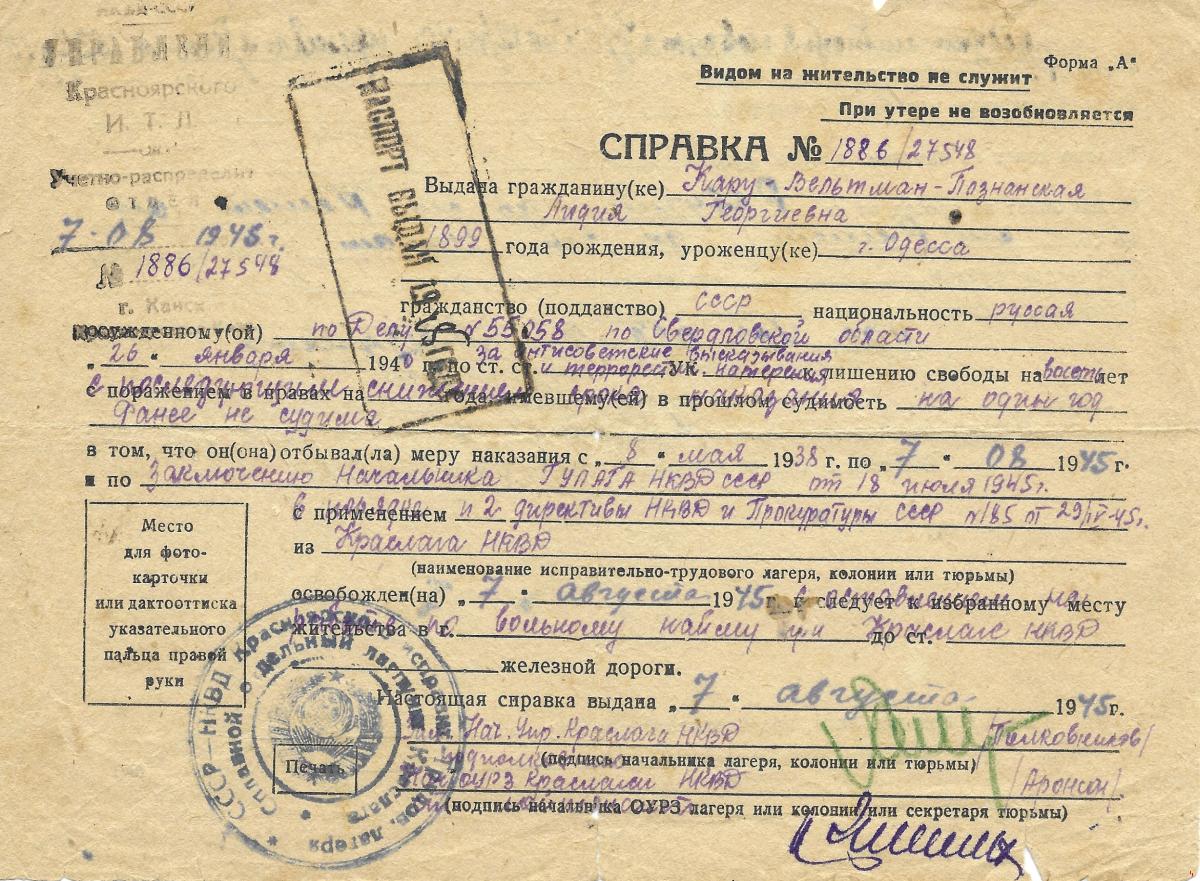 НКВД-СССР
УПРАВЛЕНИЕ
Красноярского
И. Т. Л.
Учетно-распредели
отдел
7-08 1945 г.
№ 1886/27548
г. Канск
Форма „А"
Видом на жительство не служит
При утере не возобновляется
СПРАВКА № 1886/27548
ПАСПОРТ ВЫДАН
Выдана гражданину(ке) Кару-Вельтман-Познанская
Лидия Георгиевна
1899 года рождения, уроженцу(ке) г. Одесса
гражданство (подданство) СССР национальность русская
осужденному(ой) по Делу №55058 по Свердловской области
„26" января 1940 г. по ст. ст. УК к лишению свободы на восемь лет
за антисоветские высказывания
и террорист. намерения
с поражением в правах на года, имевшему(ей) в прошлом судимость
с последующим снижением срока наказания на один год
Ранее не судима
в том, что он(она) отбывал(ла) меру наказания с „8" мая 1938 г. по „7" 08 1945 г.
и по Заключению Начальника ГУЛАГА НКВД СССР от 18 июля 1945 г.
с применением
в порядке п 2 директивы НКВД и Прокуратуры СССР №185 от 29/IV-45 г.
из Краслага НКВД
(наименование исправительно-трудового лагеря, колонии или тюрьмы)
освобожден(на) „7" августа 1945 г. и следует к избранному месту
с оставлением на
жительства в г. до ст.
работе по вольному найму при Краслаге НКВД
железной дороги.
Место
для фото-
карточки
или дактооттиска
указательного
пальца правой
руки
Настоящая справка выдана „7" августа 1945 г.
Зам. Нач. Упр. Краслага НКВД
подполковник /Полковников/
(подпись начальника лагеря, колонии или тюрьмы)
Нач ОУРЗ Краслага НКВД /Аронсон/
(подпись начальника ОУРЗ лагеря или колонии или секретаря тюрьмы)
Печать
СССР-НКВД Красноярский исправ. трудов. лагеря